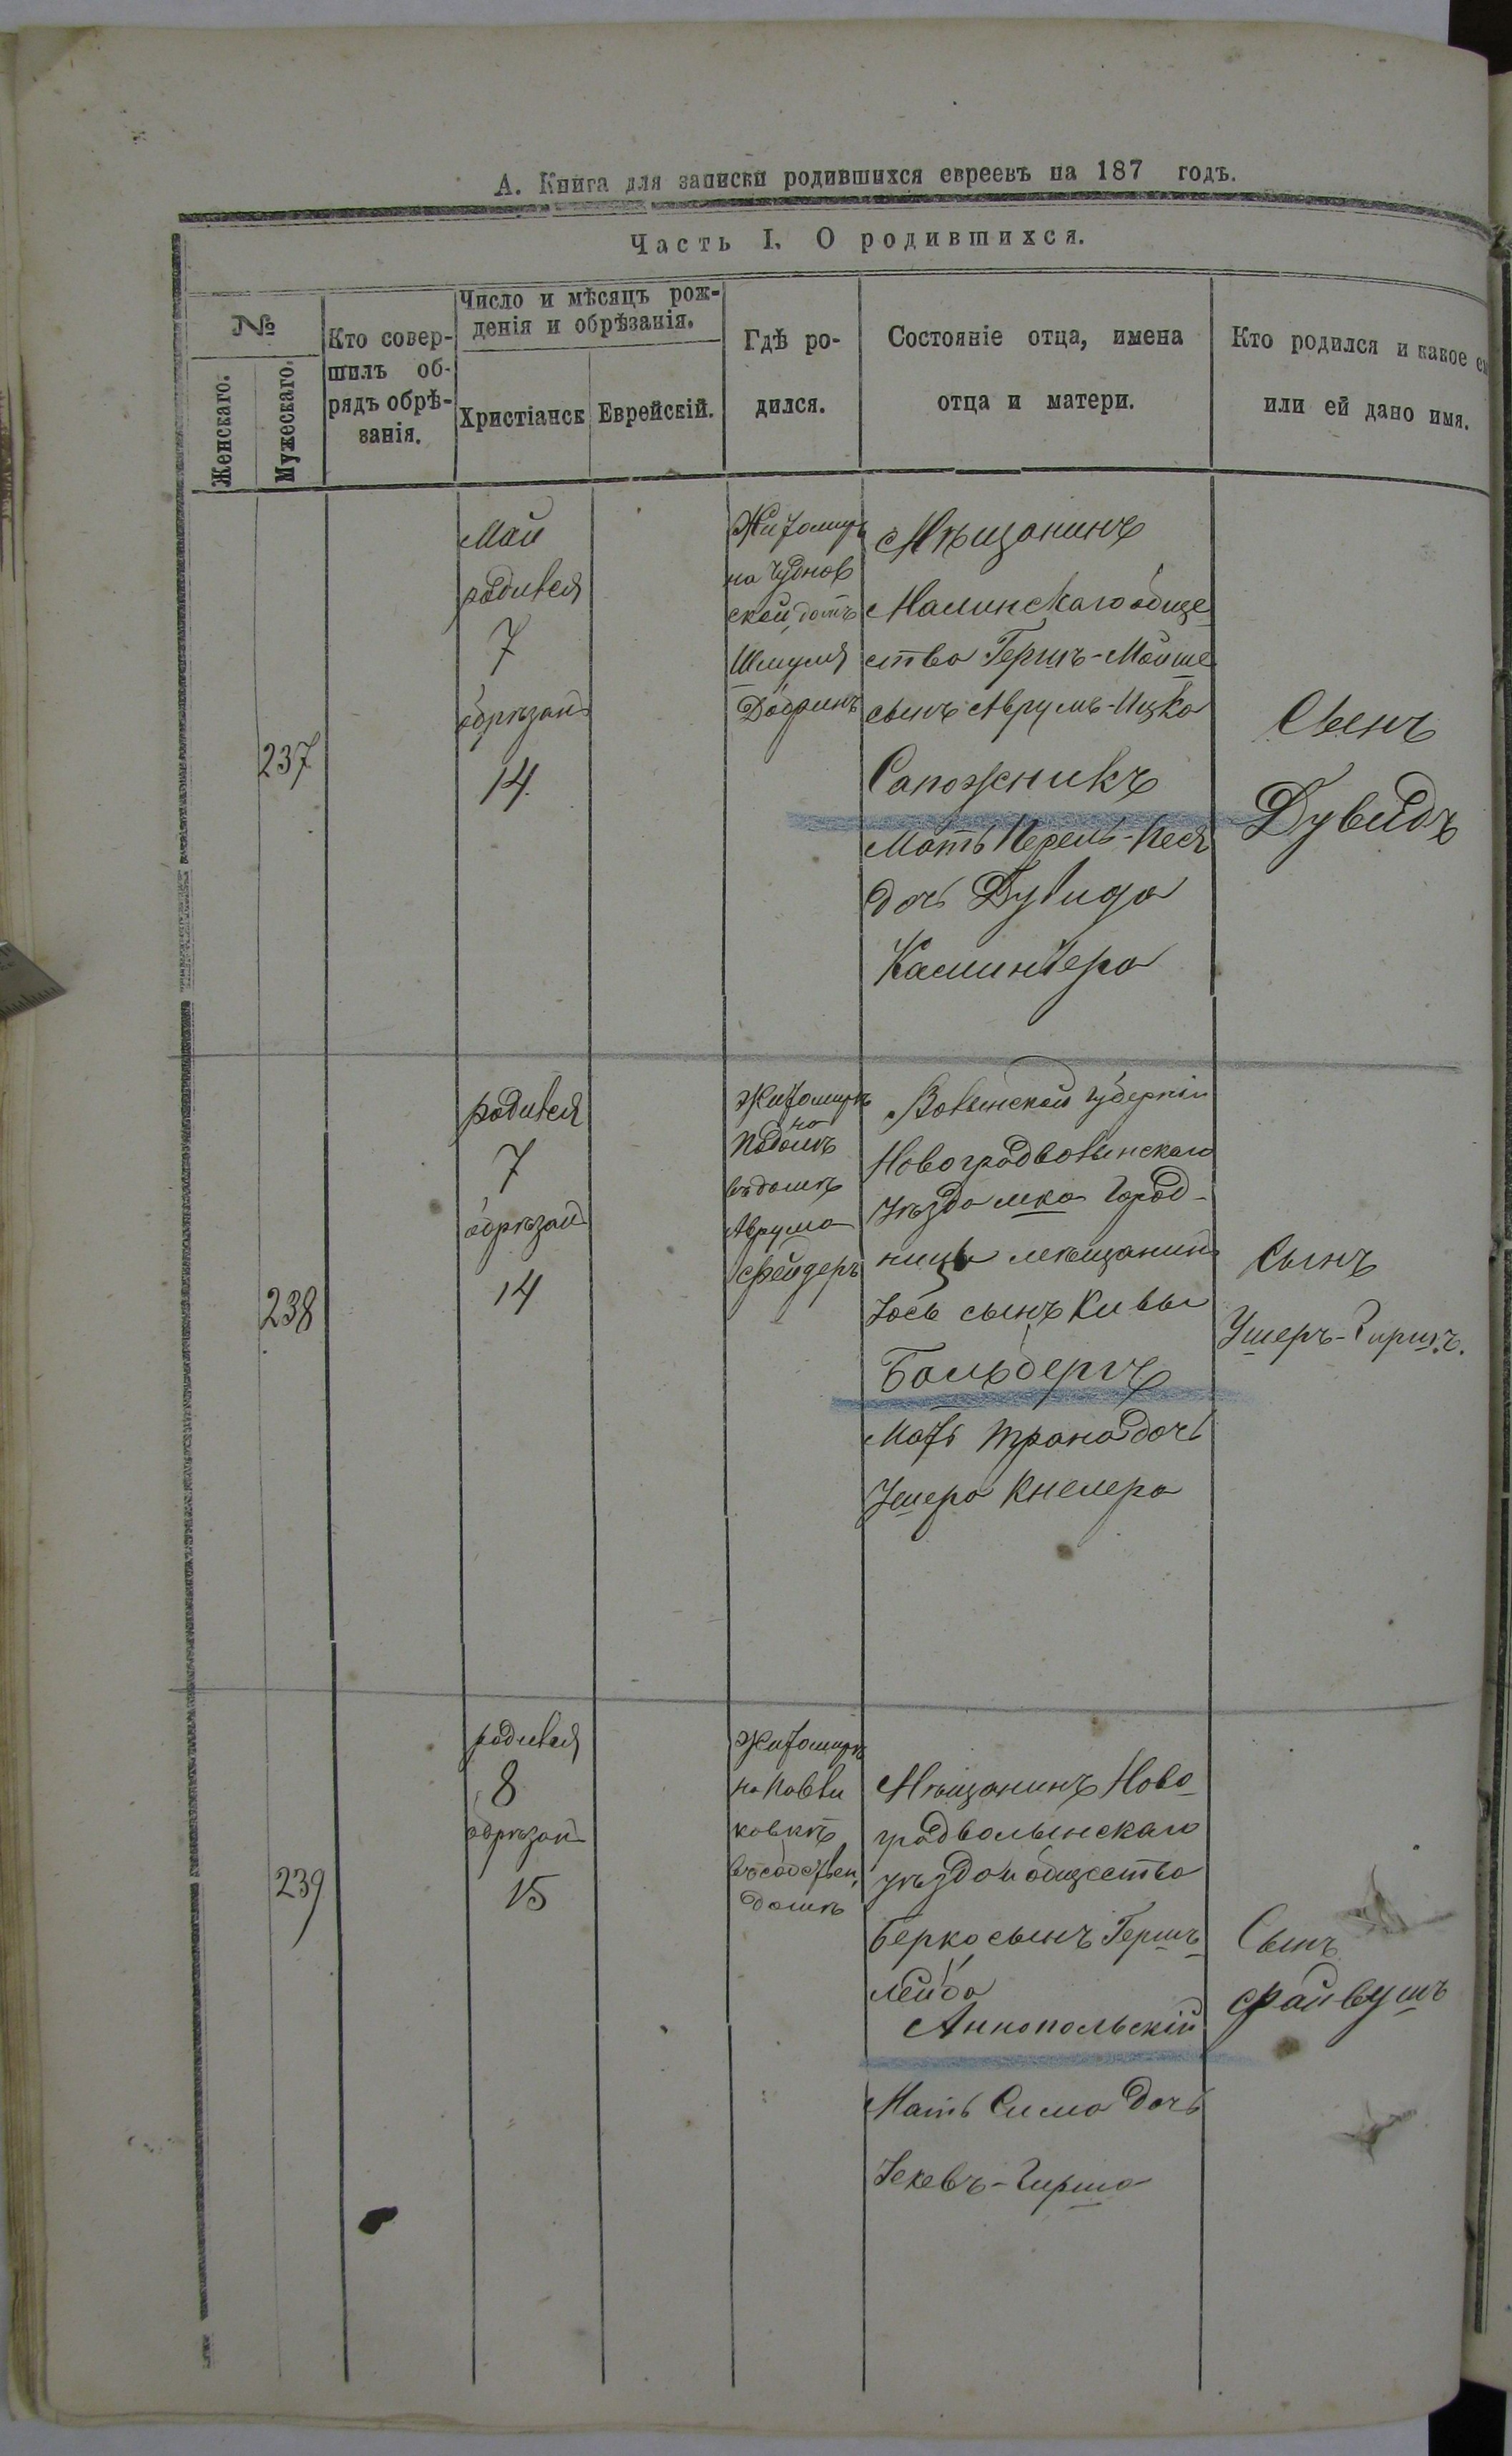 А. Книга для записки родившихся евреевъ на 187 годъ.
Часть I. О родившихся.
№
Женскаго.
Мужескаго.
Кто совер-
шилъ об-
рядъ обрѣ-
занія.
Число и мѣсяцъ рож-
денія и обрѣзанія.
Христіанск
Еврейскій.
Гдѣ ро-
дился.
Состояніе отца, имена
отца и матери.
Кто родился и какое ем
или ей дано имя.
237
Май
родився
7
обрѣзан
14
Житомиръ
на Чуднов
ской, домъ
Шмуля
Добринъ
Мѣщанинъ
Малинскаго обще
ства Гершъ-Мойше
сынъ Аврумъ-Ицка
Сапожникъ
Мать Перель-Песя
дочь Дувида
Каминкера
Сынъ
Дувидъ
238
родився
7
обрѣзан
14
Житомирѣ
на
Подолѣ
въ домѣ
Аврума
Фейдеръ
Волынской губерніи
Новоградволынскаго
уѣзда мка Город-
ницы мѣщанинъ
Іось сынъ Кивы
Бальбергъ
Мать Трана дочь
Ушера Кнелера
Сынъ
Ушеръ-Гиршъ.
239
родився
8
обрѣзан
15
Житомирѣ
на Павли
ковкѣ
въ собствен.
домѣ
Мѣщанинъ Ново
градволынскаго
уѣзда и общества
Берко сынъ Гершъ
Лейба
Аннопольскій
Мать Сима дочь
Зекевъ-Гирша
Сынъ
Файвушъ